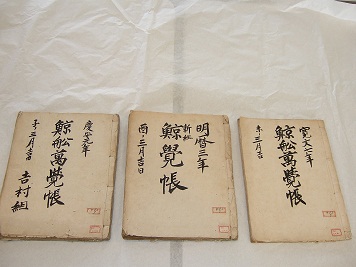 慶安元年
鯨舩萬覺帳
子ノ三月吉日
吉村組
明暦三年
新組
鯨覺帳
酉ノ三月吉日
寛文七年
鯨舩萬覺帳
未ノ三月吉